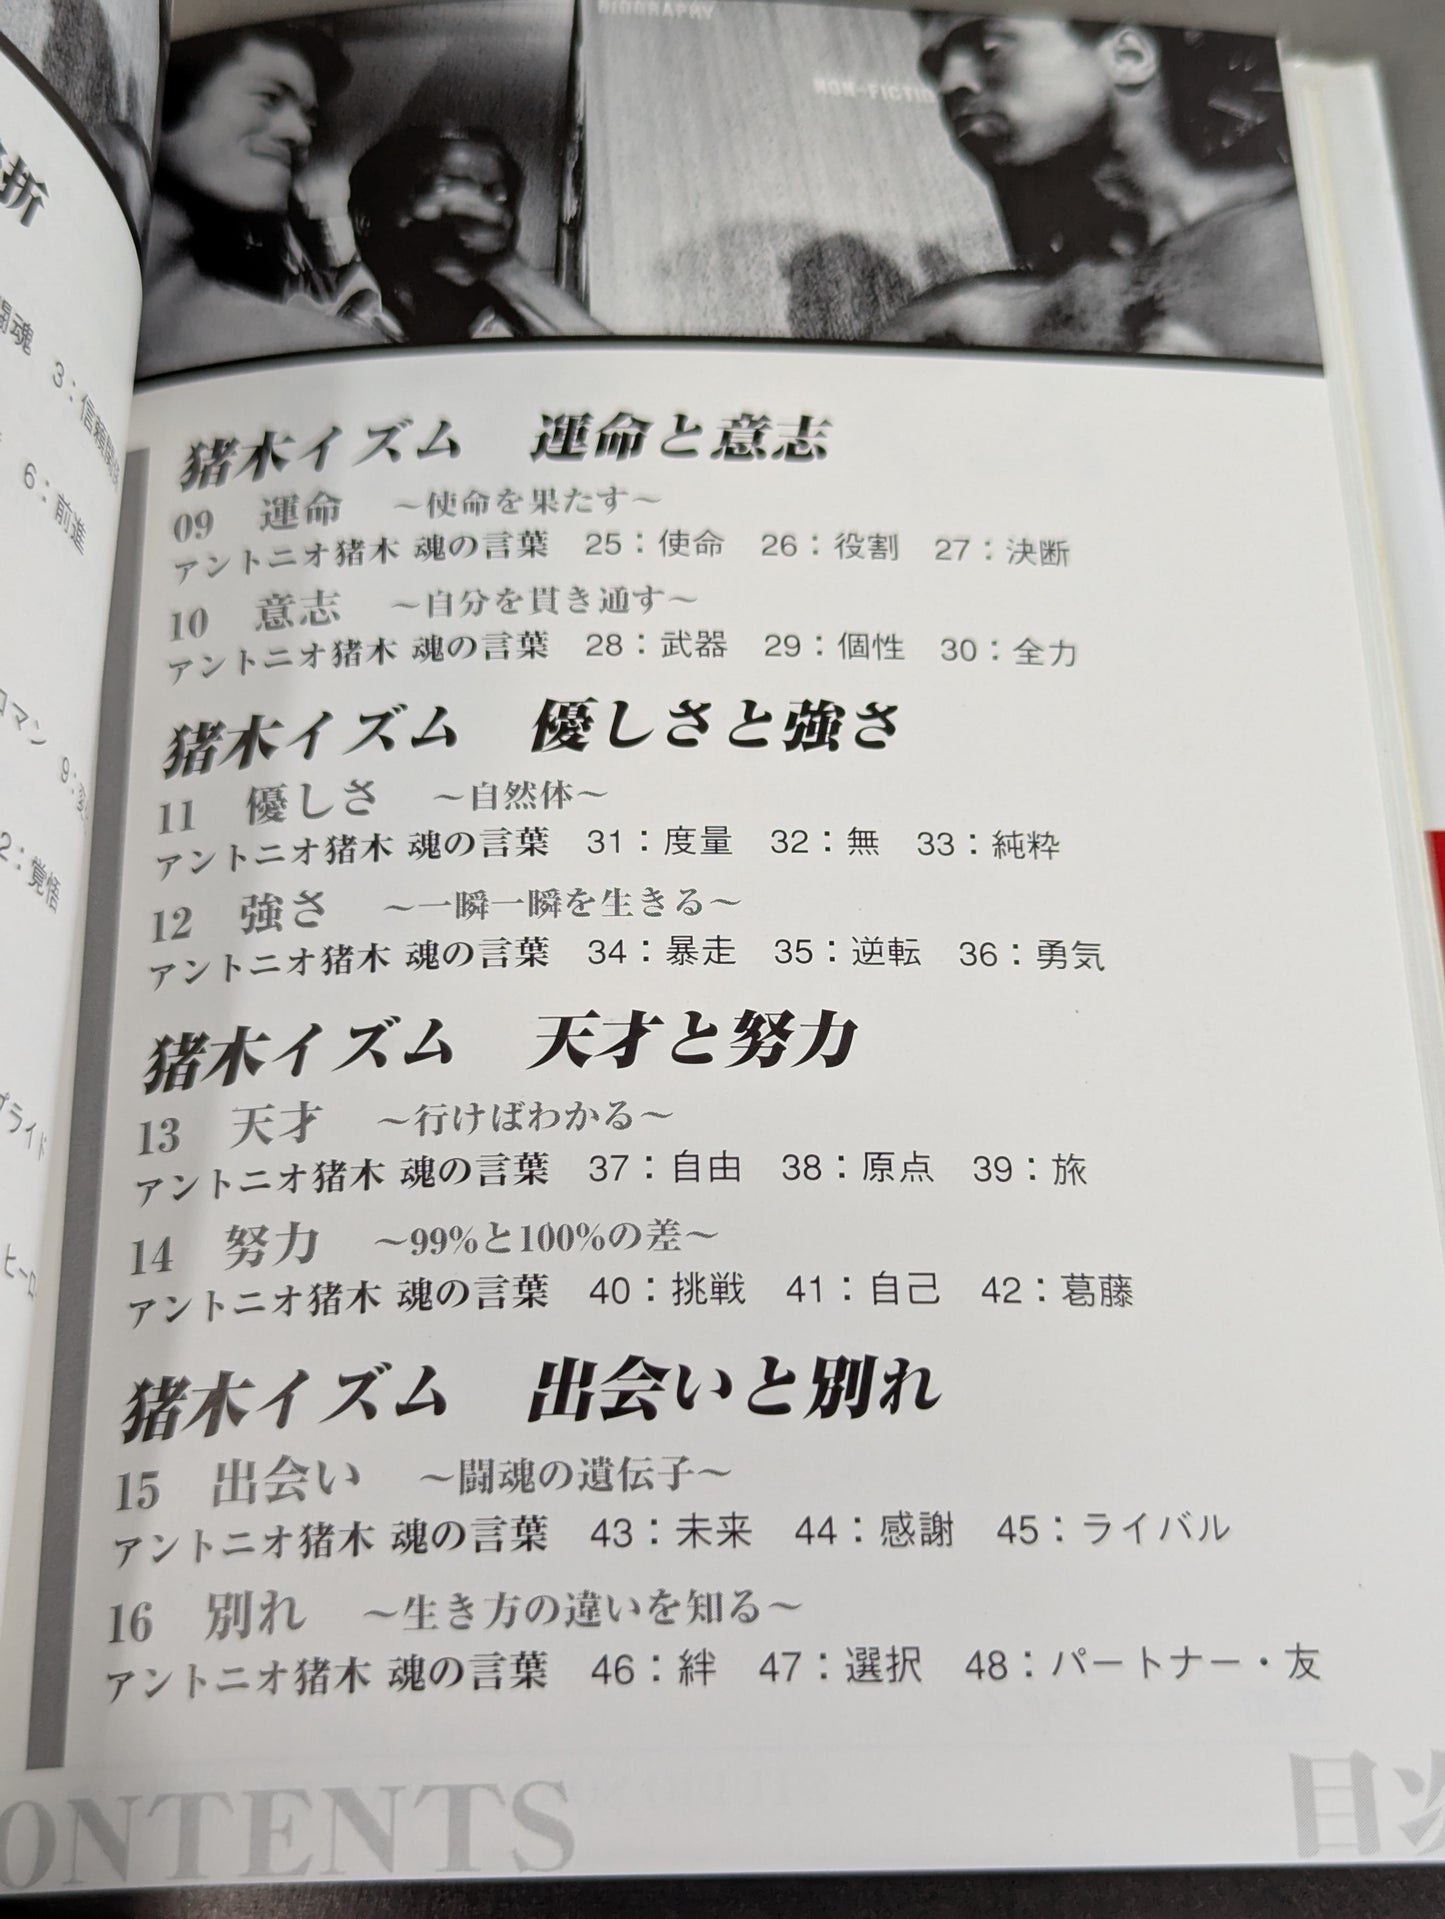 BIOGRAPHY
NON-FICTIO
折
闘魂 3：信頼関
6：前進
ロマン 9：
2：覚悟
プライド
ヒーロ
猪木イズム 運命と意志
09 運命 〜使命を果たす〜
アントニオ猪木 魂の言葉 25：使命 26：役割 27：決断
10 意志 〜自分を貫き通す〜
アントニオ猪木 魂の言葉 28：武器 29：個性 30：全力
猪木イズム 優しさと強さ
11 優しさ 〜自然体〜
アントニオ猪木 魂の言葉 31：度量 32：無 33：純粋
12 強さ 〜一瞬一瞬を生きる〜
アントニオ猪木 魂の言葉 34：暴走 35：逆転 36：勇気
猪木イズム 天才と努力
13 天才 〜行けばわかる〜
アントニオ猪木 魂の言葉 37：自由 38：原点 39：旅
14 努力 〜99%と100%の差〜
アントニオ猪木 魂の言葉 40：挑戦 41：自己 42：葛藤
猪木イズム 出会いと別れ
15 出会い 〜闘魂の遺伝子〜
アントニオ猪木 魂の言葉 43：未来 44：感謝 45：ライバル
16 別れ 〜生き方の違いを知る〜
アントニオ猪木 魂の言葉 46：絆 47：選択 48：パートナー・友
ONTENTS
目次